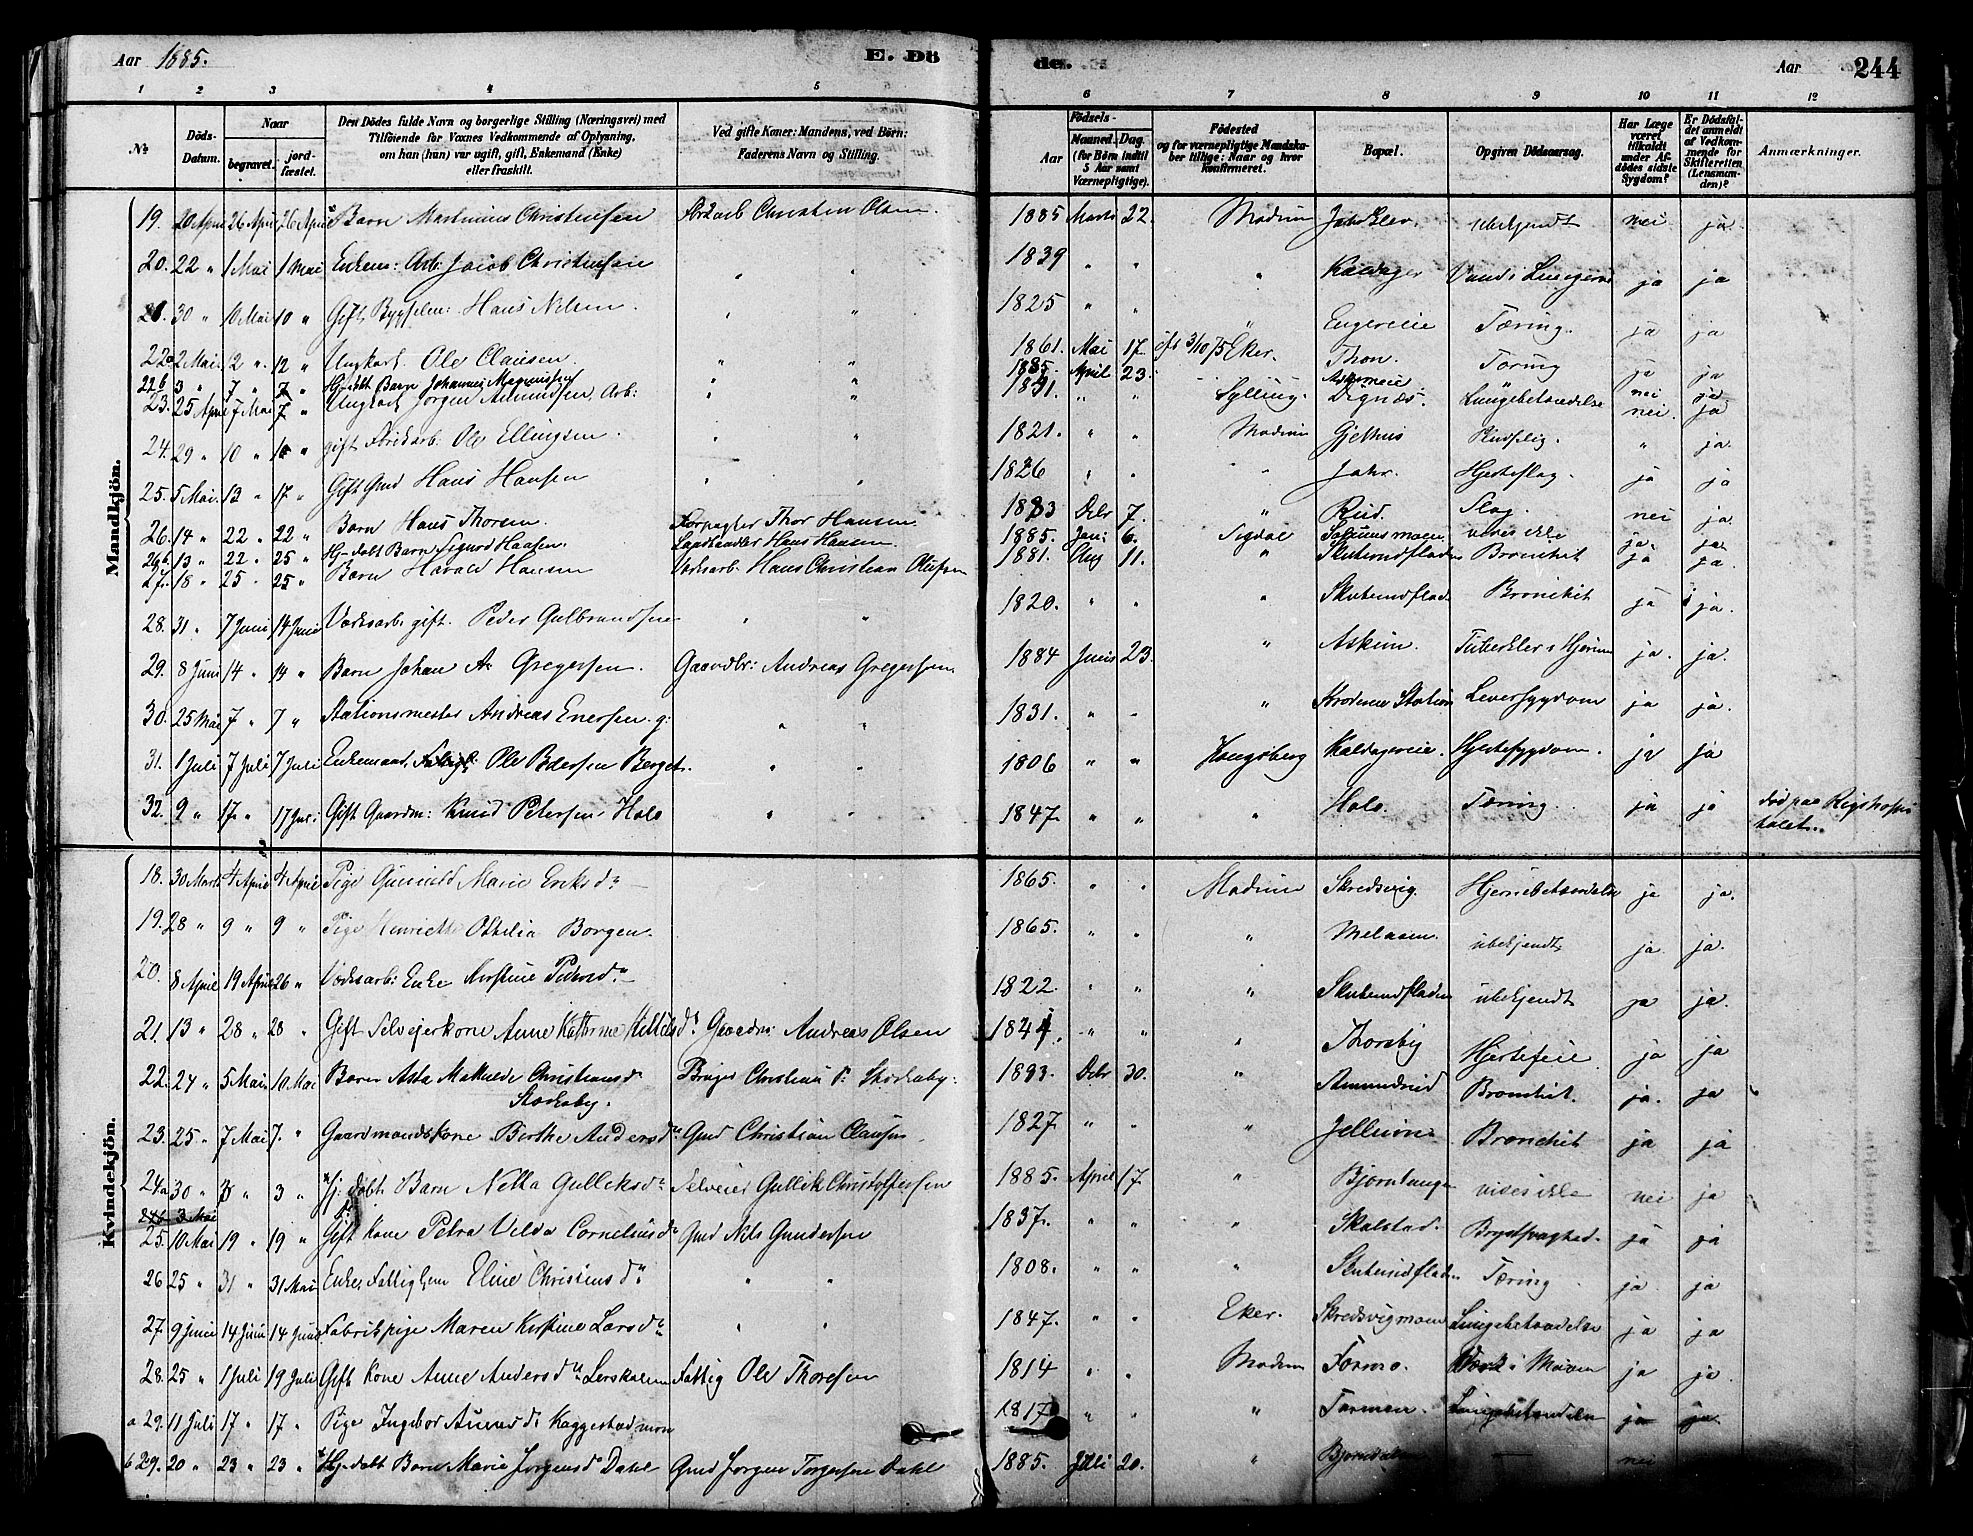 Aar 1885. E. Dö
de. Aar 244
1 2 3 4 5
6 7 8 9 10 11 12
№ Döds-Datum. Naar begravet. jordfæstet. Den Dödes fulde Navn og borgerlige Stilling (Næringsvei) med Tilföiende for Voxnes Vedkommende af Oplysning, om han (hun) var ugift, gift, Enkemand (Enke) eller fraskilt. Ved gifte Koner: Mandens, ved Börn: Faderens Navn og Stilling.
Födsels- Aar Maaned. Dag. (for Börn indtil 5 Aar samt Værnepligtige). Födested og for værnepligtige Mandskaber tillige: Naar og hvor konfirmeret. Bopæl. Opgiven Dödsaarsag. Har Læge været tilkaldt under Afdödes sidste Sygdom? Er Dödsfaldet anmeldt af Vedkommende for Skifteretten (Lensmanden)? Anmærkninger.
Mandkjön.
19. 20 April 26 April 26 April Barn Martinius Christensen Christen Olsen. 1885 Marts 22. Modum ubekjendt nei ja.
20. 22 " 1 Mai 1 Mai Enkem: Arb: Jacob Christensen " " 1839 " " " Kaldager Vand i Lungerne ja ja
21. 30 " 10 Mai 10 " Gift Hans Nilsen. " " 1825 " " " Engereie Tæring. ja ja
22a 2 Mai. 12 " 12 " Ungkarl Ole Clausen. " " 1861. Mai 17. Eker. Thon. Tæring ja ja
22b 3 " 7 " 7 " Hj-døbt Barn Johannes " " 1885. April 23. nei ja
23. 25 April 7 Mai 7 " Ungkarl Jørgen Amundsen Arb: " " " " Sylling. Dignæs. Lungebetændelse nei. ja
24. 29 " 10 " 10 " gift Ole Ellingsen. " " 1821. " " Modum Gjethus " ja.
25. 5 Mai. 13 " 17 " Gift Gmd Hans Hansen " " 1826 " " " Hjerteslag. ja ja
26. 14 " 22 " 22 " Barn Hans Thorsen. Forpagter Thor Hansen. 1883 Debr 7. " Rud. Slag. nei ja.
26b 13 " 22 " 25 " Hj-døbt Barn Sigurd Hansen. Landhandler Hans Hansen. 1885. Jan: 6. Sigdal vides ikke ja. ja.
27. 18 " 25 " 25 " Barn Harald Hansen Hans Christian Olufsen 1881. Aug 11. " Skuterudfladen Bronchit ja ja.
28. 31 " 7 Juni 14 Juni gift. Peder Gulbrandsen " " 1820. " " " Skuterudflad. Bronchit ja ja.
29. 8 Juni 14 " 14 " Barn Johan A. Gregersen. Gaardbr: Andreas Gregersen. 1884 Juni 23. " Askim. Tuberkler i Hjernen ja. ja.
30. 25 Mai 7 " 7 " Stationsmester Andreas Enersen. g: " " 1831. " " " Station Leversygdom ja ja.
31. 1 Juli 7 Juli 7 Juli Enkemand, Ole Berget. " " 1806 " " Kongsberg Kaldagereie. Hjertesygdom. ja ja
32. 9 " 17 " 17 Juli Gift Gaardm: Knud Petersen Holo " " 1847. " " " Holo. Tæring. ja ja død paa Rigshospitalet.
Kvindekjön.
18. 30 Marts 4 April 4 April Pige Gunild Marie Eriksd. 1865. " " Modum Skredsvig. Hjernebetændelse ja ja.
19. 28 " 9 " 9 " Pige Henriette Othilia Borgen. 1865. " " " Melaaen. ubekjendt ja ja.
20. 8 April 19 April 26 " Enke Kirstine Pedersd. 1822. " " " Skuterudfladen ubekjendt ja ja.
21. 13 " 28 " 28 " Gift Selveierkone Anne Kathrine Kittelsd. Gaardm: Andreas Olsen " " " Thoresby Hjertefeil ja ja
22. 24 " 5 Mai 10 Mai Barn Asta Mathilde Christiansd. Christian P. 1883. Debr 30. " Amundrud Bronchit. ja. ja
23. 25 " 7 Mai 7. " Gaardmandskone Berthe Andersd. Gmd Christian Clausen 1827 " " " Bronchit ja ja
24a 30 " 3 " Hj: døbt Barn Netta Gulliksd. Selveier Gullik Christoffersen 1885. April 17. " vides ikke nei ja
24b 3 Mai
25. 10 Mai 19 " 19 " Gift Kone Petra Velda Corneliusd. Gmd Nils Gundersen 1837. " " " Skalstad. Brystsvaghed. ja ja
26 25 " 31 " 31 Mai Enke, Fattiglem Eline Christensd. " " 1808. " " " Skuterudfladen Tæring ja. ja
27. 9 Juni 14 Juni 14 Juni Fabrikpige Maren Kirstine Larsd. " " 1847. " " Eker. Skredsvigmoen Lungebetændelse ja ja
28. 25 " 1 Juli 19 Juli Gift Kone Anne Andersd. Fattig Ole Thoresen 1814 " " Modum Formo. i Maven ja ja.
a 29. 11 Juli 17 " 17 " Pige Ingebor Kaggestadmoen 1817 " " " Lungebetændelse ja ja.
b 29. 20 " 23 " 23 " Hj-døbt Barn Marie Jørgensd. Dahl Gmd Jørgen Torgersen Dahl 1885. Juli 20. " Bjørndalen — nei